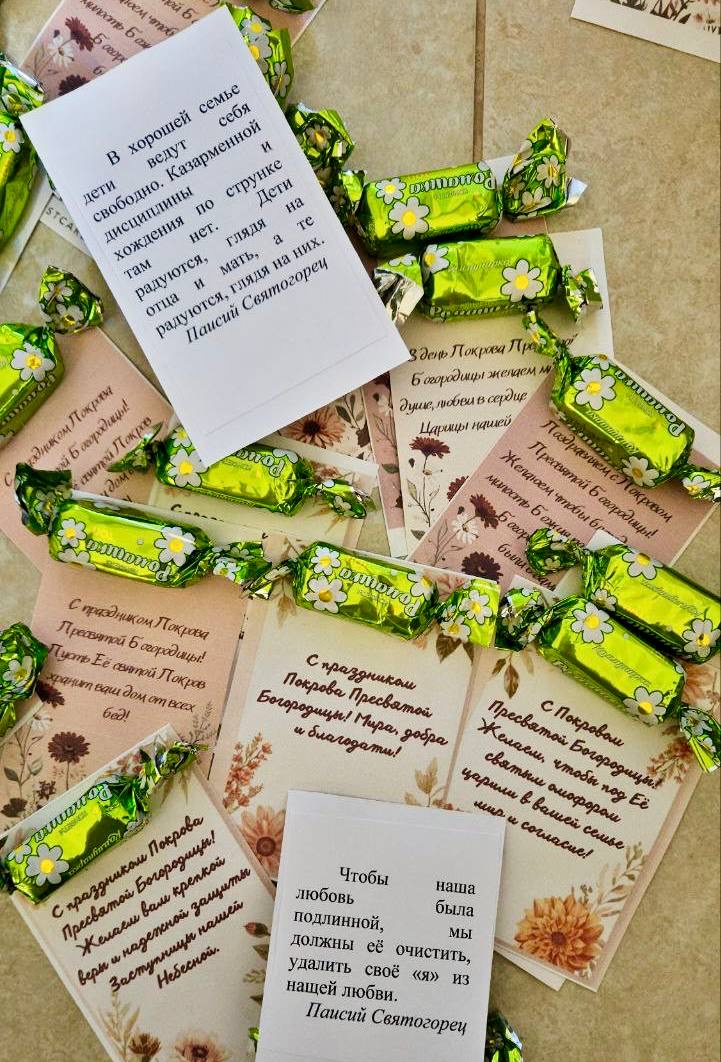 В хорошей семье
дети ведут себя
свободно. Казарменной
дисциплины и
хождения по струнке
там нет. Дети
радуются, глядя на
отца и мать, а те
радуются, глядя на них.
Паисий Святогорец
Ромашка
Ромашка
В день Покрова
Богородицы желаем
душе, любви в сердце
Царицы нашей
Поздравляем с Покровом
Пресвятой Богородицы!
Желаем чтобы
милость Божия
С праздником Покрова
Богородицы!
святой Покров
Ромашка
Ромашка
Ромашка
С праздником Покрова
Пресвятой Богородицы!
Пусть Её святой Покров
хранит ваш дом от всех
бед!
С праздником
Покрова Пресвятой
Богородицы! Мира, добра
и благодати!
С Покровом
Пресвятой Богородицы!
Желаем, чтобы под Её
святым омофором
царили в вашей семье
мир и согласие!
Ромашка
С праздником Покрова
Пресвятой Богородицы!
Желаем вам крепкой
веры и надежной защиты
Заступницы нашей
Небесной.
Чтобы наша
любовь была
подлинной, мы
должны её очистить,
удалить своё «я» из
нащей любви.
Паисий Святогорец